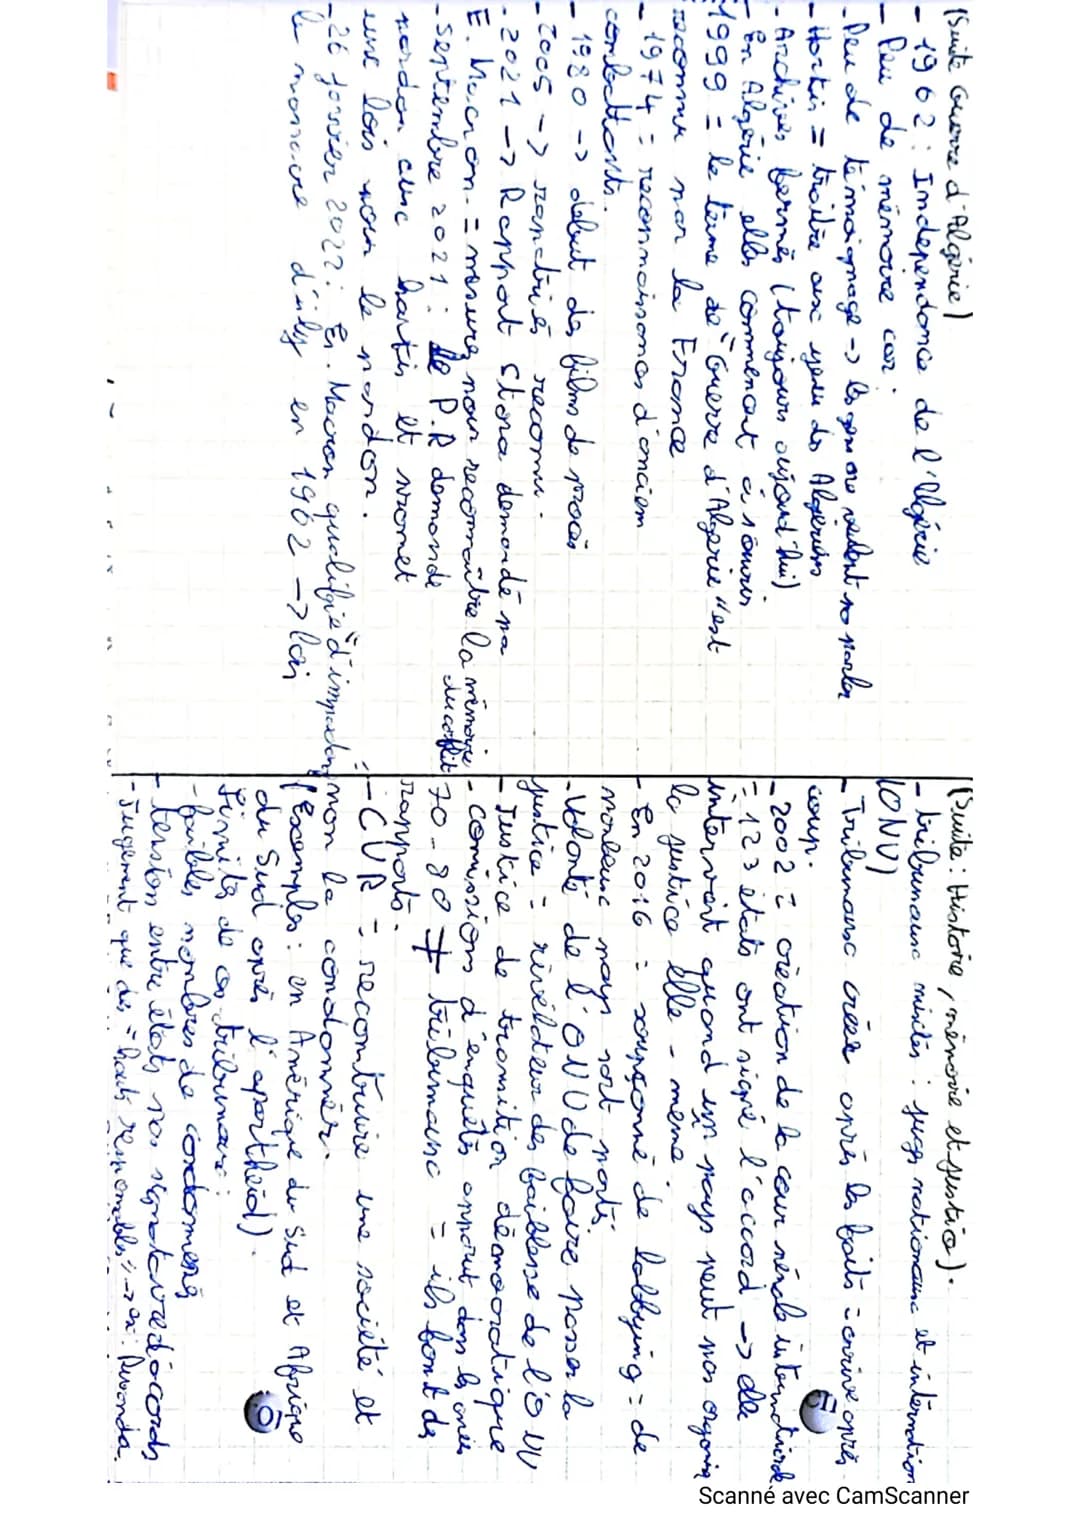 (Suite Guerre d'Algérie)
- 1962 : Independance de l'Algérie
- Peu de mémoire car :
- Peu de témoignage -> les gens ne veulent pas parler
- Harkis = traitre aux yeux des Algériens
- Archives fermés (toujours aujoud'hui)
- En Algérie elles commencent à s'ouvrir
1999 = le terme de "Guerre d'Algérie" est
reconnu par la France
- 1974 = reconnaissances d'ancien
combattants.
- 1980 -> debut de films de procès
- 2005 -> rapatriés reconnu.
- 2021 -> Rapport Stora demandé pa
E. Macron = mesures pour reconnaître la mémoire
du conflit
- Septembre 2021 : le P.R demande
pardon aux harkis et promet
une lois pour le pardon.
- 26 janvier 2022 : Em. Macron qualifie "d'impardon
le massacre d'Isly en 1962 -> loi
(Suite : Histoire, mémoire et justice).
- tribunaux mixtes : juges nationaux et internation
(ONU)
- Tribunaux créés après les faits = arrive après
coup.
- 2002 = création de la cour pénale internationale
= 123 états ont signé l'accord -> elle
intervient quand un pays peut pas organis
la justice elle-même
- En 2016 = soupçonné de lobbying = de
nombreux pays sont partis
- Volonté de l'ONU de faire passer la
justice = révélateur des faiblesse de l'ONU
- Justice de transition démocratique
- Comissions d'enquêtes apparut dans les années
70-80 ≠ tribunaux = ils font des
rapports.
- CVR = reconstruire une société et
non la condamner.
(Exemples : en Amérique du Sud et Afrique
du Sud après l'apartheid).
Limites de ces tribunaux :
- faibles nombres de condamnés
- tension entre états pas signataire d'accords
- Jugement que des "hauts responsables" -> ex : Rwanda.
Scanné avec CamScanner